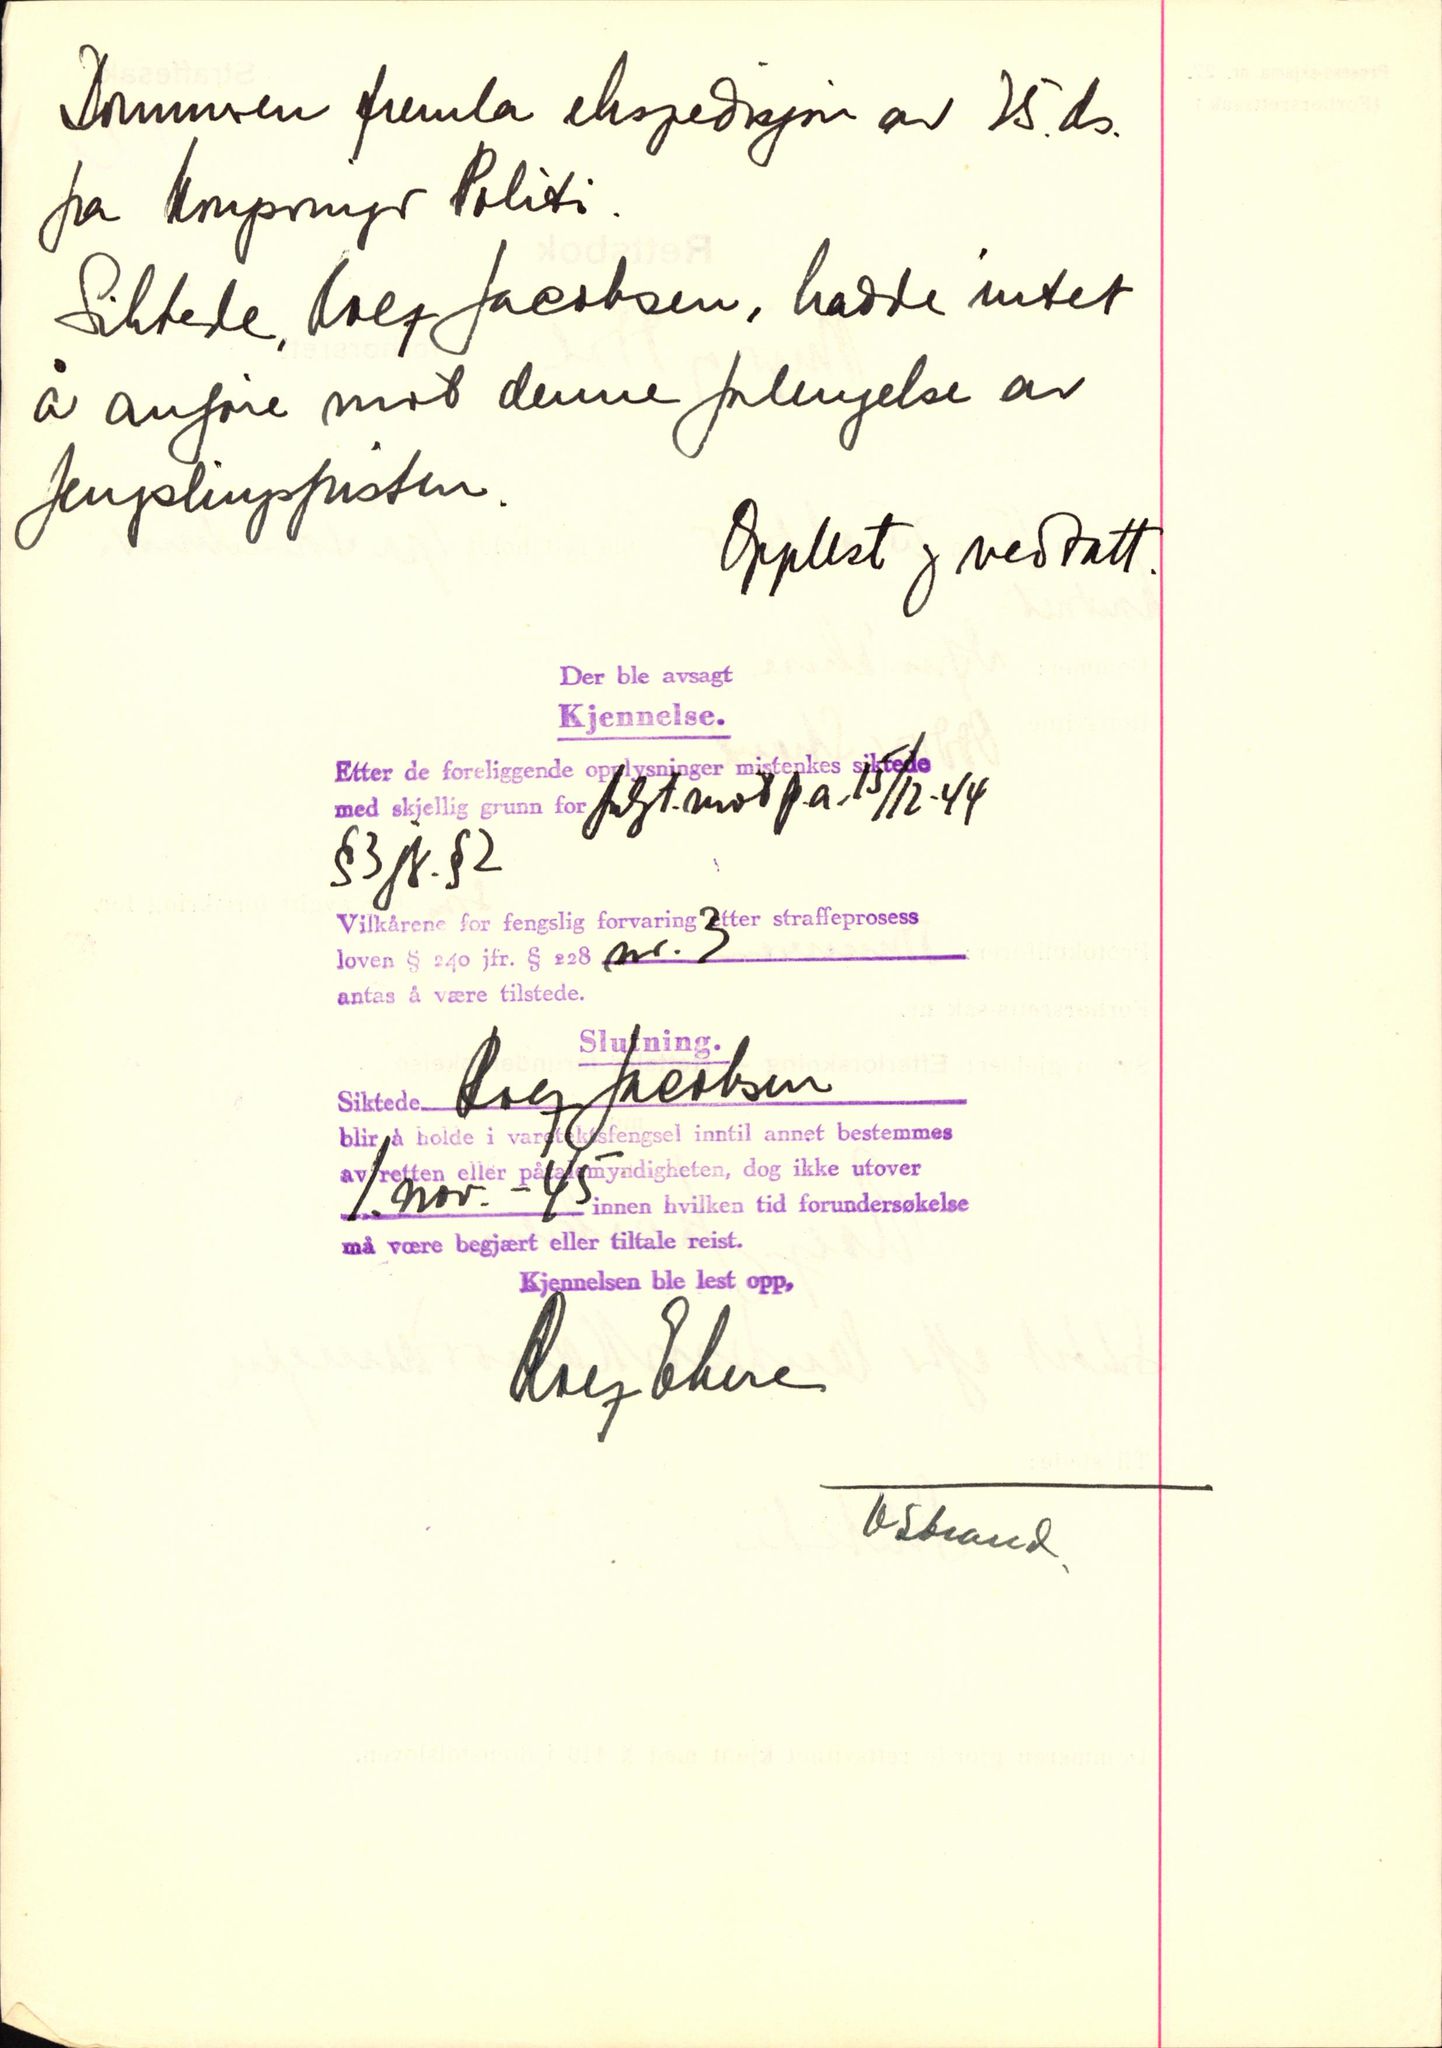 Dommeren fremla ekspedisjon av 25. ds.
fra Kongsvinger Politi.
Siktede, Rolf Jacobsen, hadde intet
å anføre mot denne forlengelse av
fengslingsfristen.
Opplest og vedtatt.
Der ble avsagt
Kjennelse.
Etter de foreliggende opplysninger mistenkes siktede
med skjellig grunn for forbr. mot p.a. 15/12-44
§3 jfr. §2
Vilkårene for fengslig forvaring etter straffeprosess
loven § 240 jfr. § 228 nr. 3
antas å være tilstede.
Slutning.
Siktede Rolf Jacobsen
blir å holde i varetektsfengsel inntil annet bestemmes
av retten eller påtalemyndigheten, dog ikke utover
1. nov. -45 innen hvilken tid forundersøkelse
må være begjært eller tiltale reist.
Kjennelsen ble lest opp,
Rolf
OStrand.